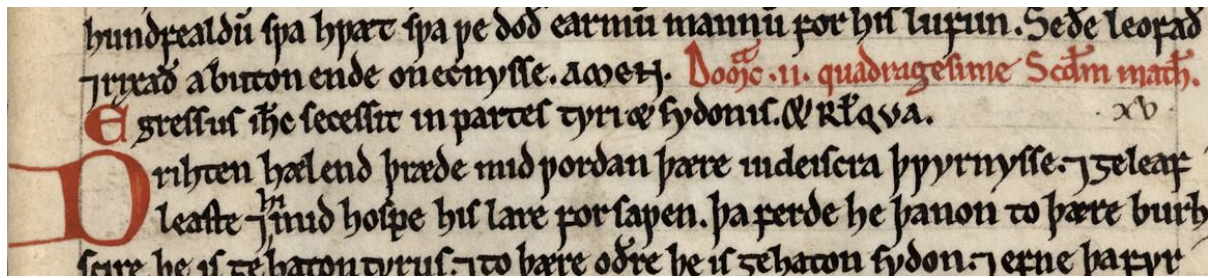 hundfealdū spa hpæt spa pe doð earmū mannū for his lufun. Seðe leofað
⁊ rixað abuton ende on ecnysse. amen. Domic̄ .ii. quadragesime Scd̄m math̄.
Egressus ih̄c secessit in partes tyri & sydonis. & Rł̄qva. xv
Drihten hælend þræde mid pordan þære iudeiscra þpyrnysse. ⁊ geleaf
leaste ⁊ hī mid hospe his lare forsapen. þa ferde he þanon to þære burh
scire þe is gehaton tyrus. ⁊ to þære oðre þe is gehaton sydon. ⁊ efne þa